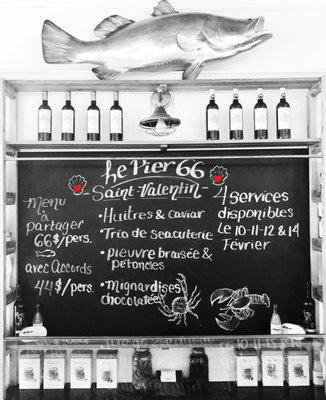 Le Pier 66
Saint-Valentin
Menu
à
partager
66$/pers.
avec Accords
44$/pers.
• Huîtres & caviar
• Trio de seacuterie
• pieuvre braisée &
pétoncles
• Mignardises
chocolatées
4 services
disponibles
Le 10-11-12 & 14
Février